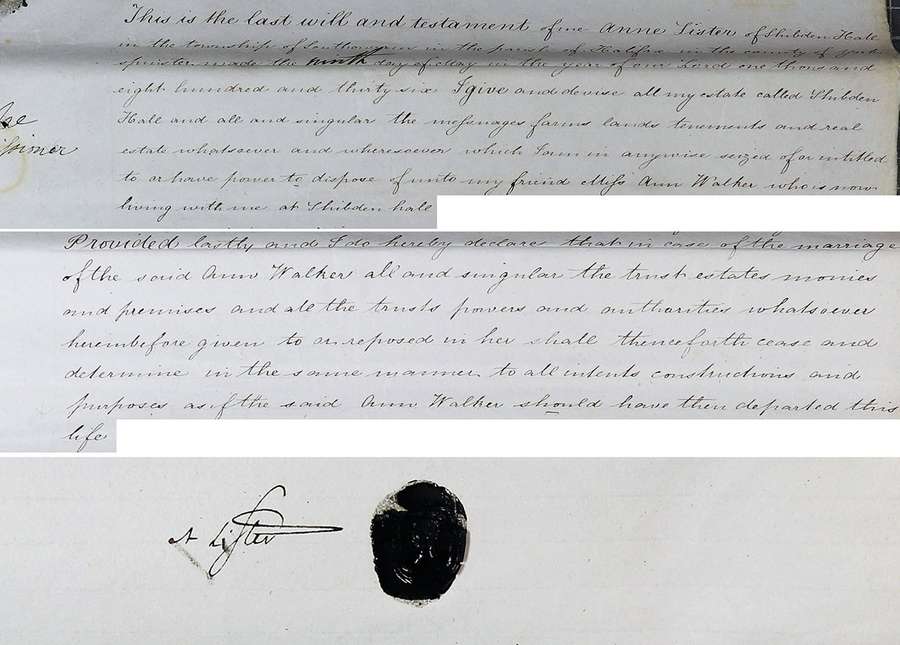 This is the last will and testament of me Anne Lister of Shibden Hall
in the township of Southowram in the parish of Halifax in the county of York
spinster made the ninth day of May in the year of our Lord one thousand
eight hundred and thirty six I give and devise all my estate called Shibden
Hall and all and singular the messuages farms lands tenements and real
estate whatsoever and wheresoever which I am in anywise seized of or intitled
to or have power to dispose of unto my friend Miss Ann Walker who is now
living with me at Shibden hall
Provided lastly and I do hereby declare that in case of the marriage
of the said Ann Walker all and singular the trust estates monies
and premises and all the trusts powers and authorities whatsoever
hereinbefore given to or reposed in her shall thenceforth cease and
determine in the same manner to all intents constructions and
purposes as if the said Ann Walker should have then departed this
life
A Lister